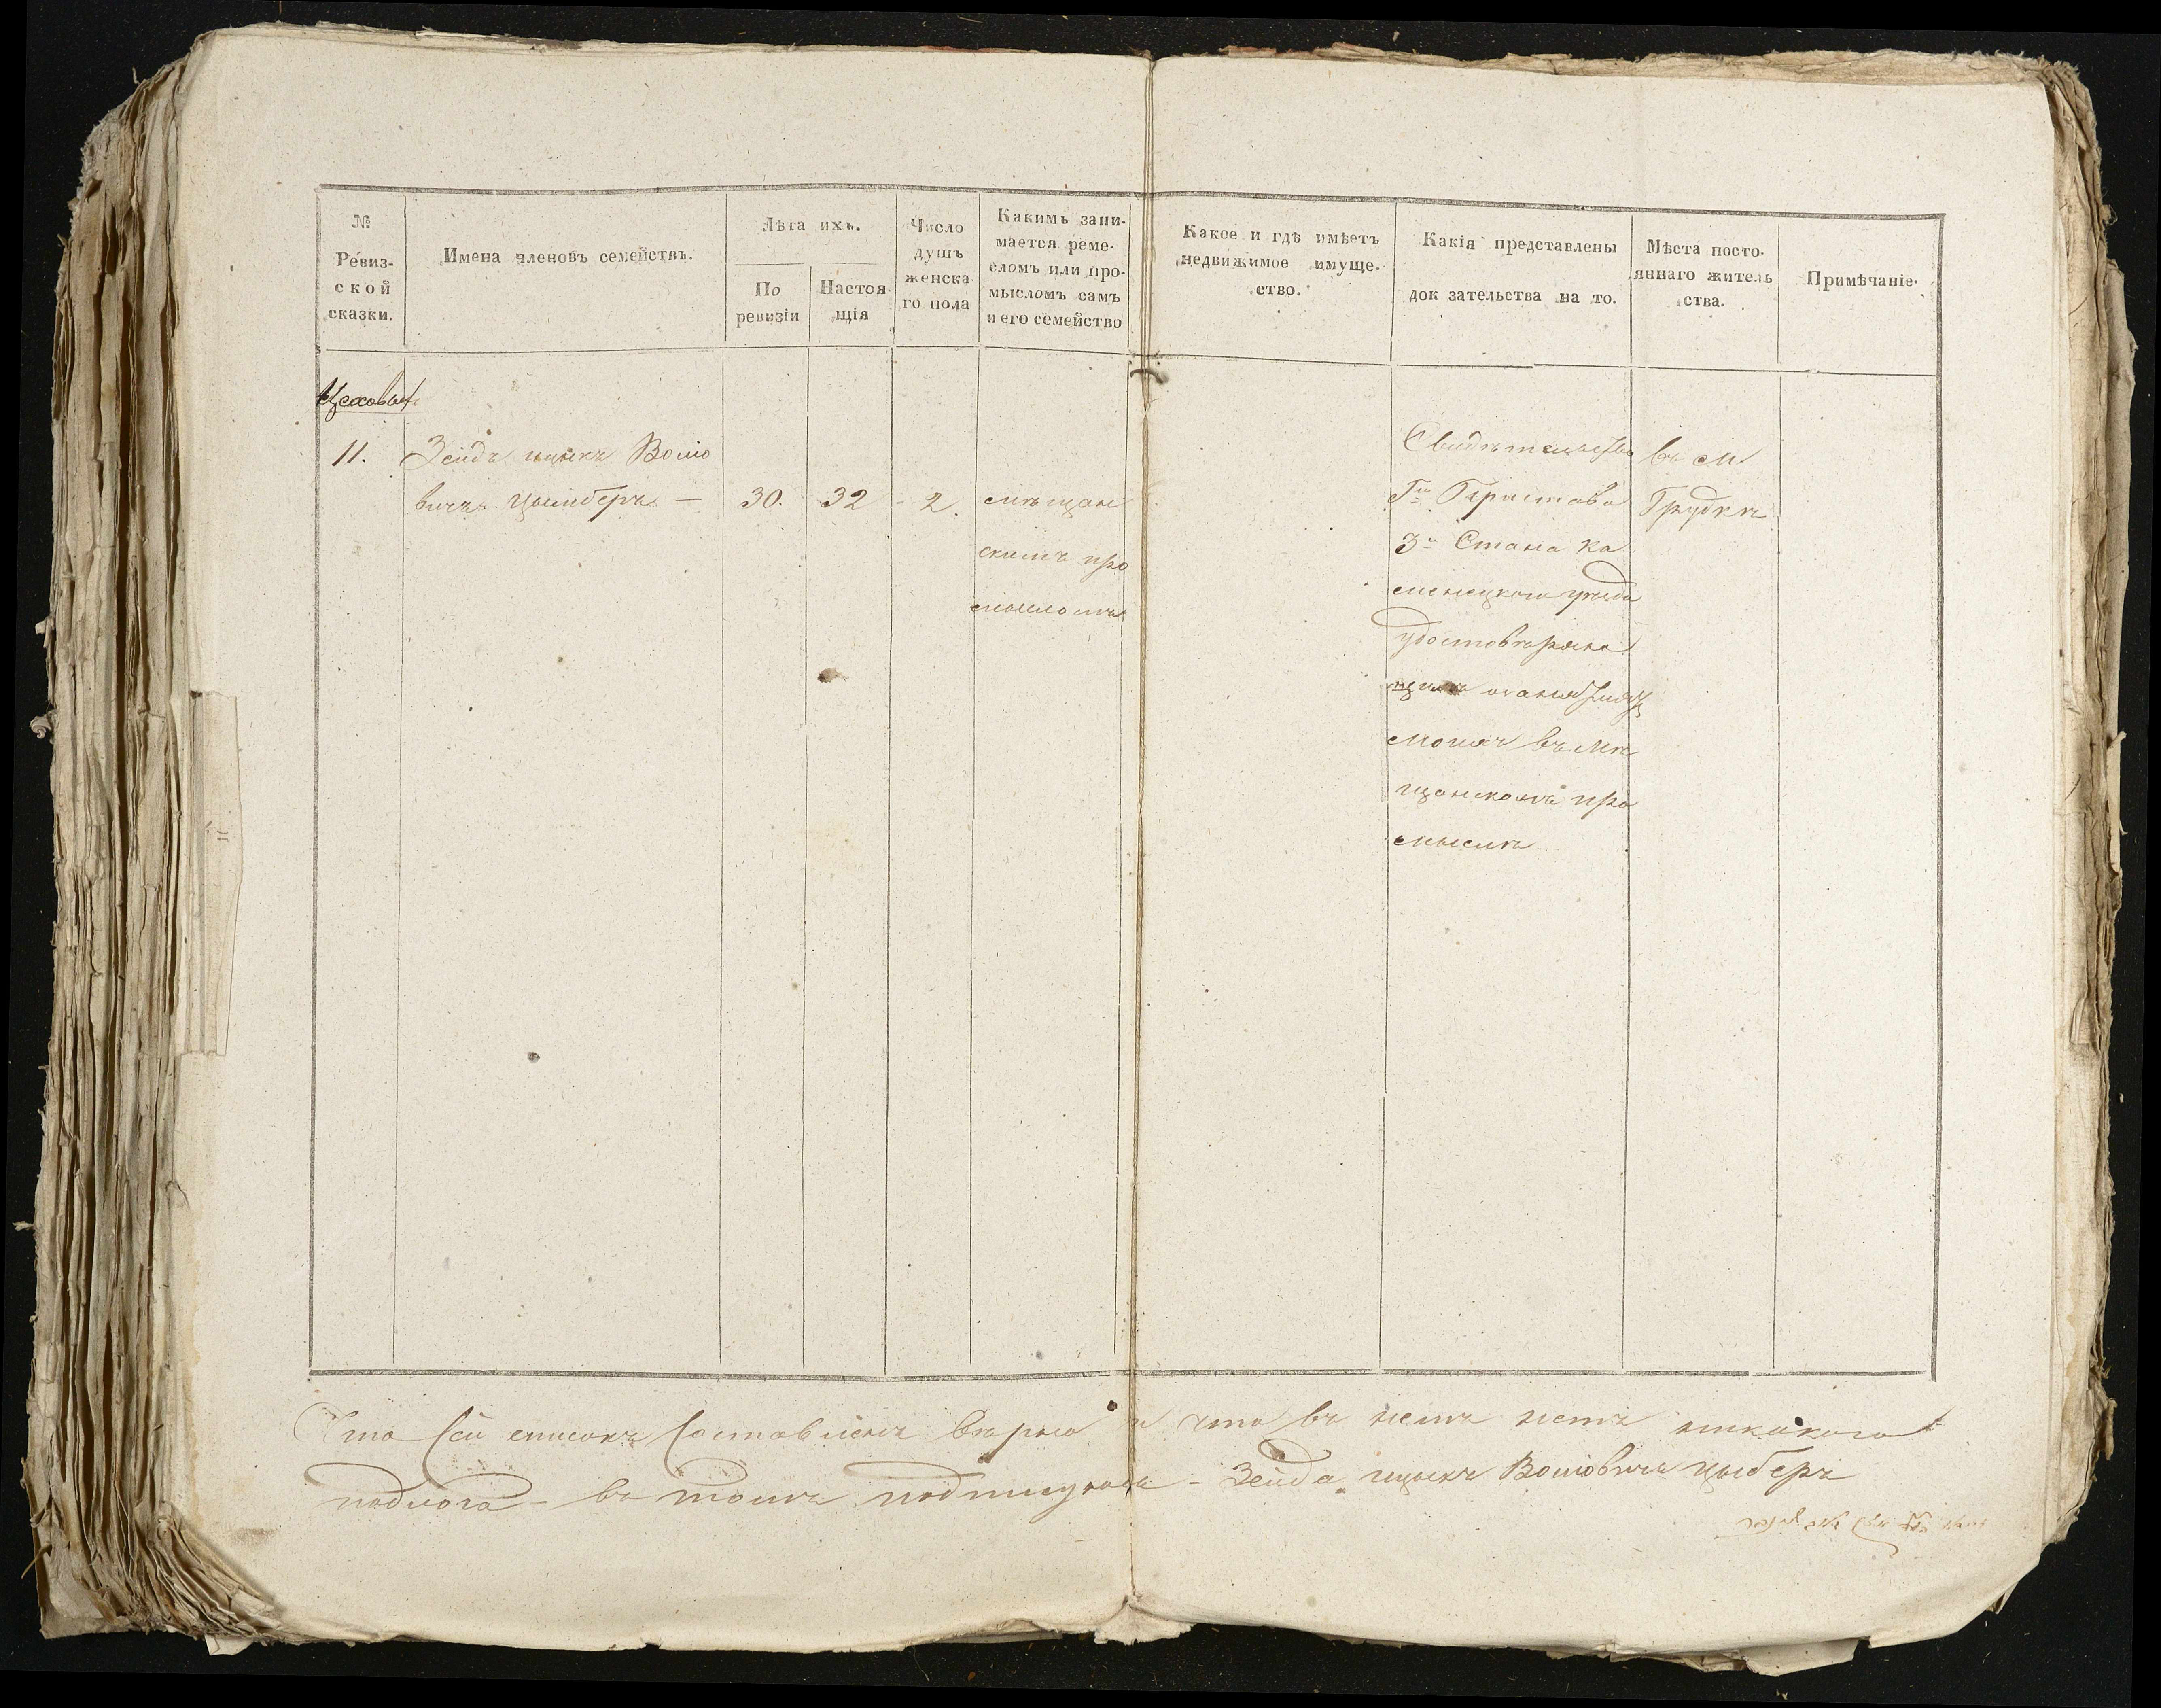 №
Ревиз-
ской
сказки.
Имена членовъ семействъ.
Лѣта ихъ.
По
ревизіи
Настоя
щія
Число
душъ
женска
го пола
Какимъ зани-
мается реме-
сломъ или про-
мысломъ самъ
и его семейство
Какое и гдѣ имѣетъ
недвижимое имуще-
ство.
Какія представлены
док зательства на то.
Мѣста посто-
яннаго житель
ства.
Примѣчаніе.
Цеховые
11.
Зейдъ ицыкъ Волио
вичъ цымберъ —
30.
32
2.
мѣщан
скимъ про
мысломъ
Свидѣтельство
Гна Пристава
3го Стана Ка
менецкого уѣзда
удостовѣряю
о занятіи
въ мѣ
щанскомъ про
мыслѣ
въ м
Грудкѣ
Что сей списокъ составленъ вѣрно и что въ немъ нетъ никакого
подлога — въ томъ подписуюсь — Зейда ицыкъ Волиовичъ цыберъ